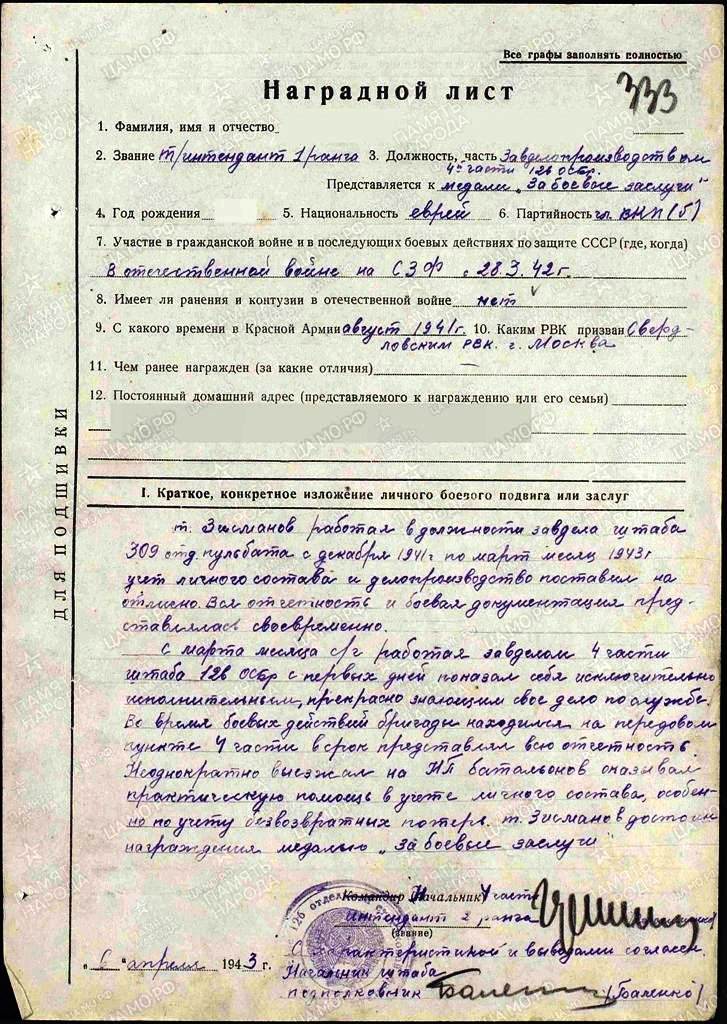 Все графы заполнять полностью
Наградной лист
333
1. Фамилия, имя и отчество
2. Звание т/интендант 1 ранга 3. Должность, часть Завделопроизводством
4ой части 126 осбр.
Представляется к медали „За боевые заслуги"
4. Год рождения 5. Национальность еврей 6. Партийность чл. ВКП(б)
7. Участие в гражданской войне и в последующих боевых действиях по защите СССР (где, когда)
В отечественной войне на СЗФ с 28.3.42г.
8. Имеет ли ранения и контузии в отечественной войне нет
9. С какого времени в Красной Армии август 1941г. 10. Каким РВК призван Сверд-
ловским РВК. г. Москва
11. Чем ранее награжден (за какие отличия) —
12. Постоянный домашний адрес (представляемого к награждению или его семьи)
ДЛЯ ПОДШИВКИ
I. Краткое, конкретное изложение личного боевого подвига или заслуг
т. Зисманов работая в должности завдела штаба
309 отд. пульбата с декабря 1941г по март месяц 1943г
учет личного состава и делопроизводство поставил на
отлично. Вся отчетность и боевая документация пред-
ставлялась своевременно.
С марта месяца с/г работая завделом 4 части
штаба 126 осбр с первых дней показал себя исключительно
исполнительным, прекрасно знающим свое дело по службе.
Во время боевых действий бригады находился на передовом
пункте 4 части в срок представлял всю отчетность.
Неоднократно выезжал на НП батальонов оказывал
практическую помощь в учете личного состава, особен-
но по учету безвозвратных потерь. т. Зисманов достоин
награждения медалью „За боевые заслуги"
Командир Начальник 4 части
интендант 2 ранга
(звание)
126 отдельная
С характеристикой и выводами согласен.
„6" апреля 1943 г.
Начальник штаба
подполковник Баленко (Баленко)
ЦАМО.РФ
ПАМЯТЬ НАРОДА